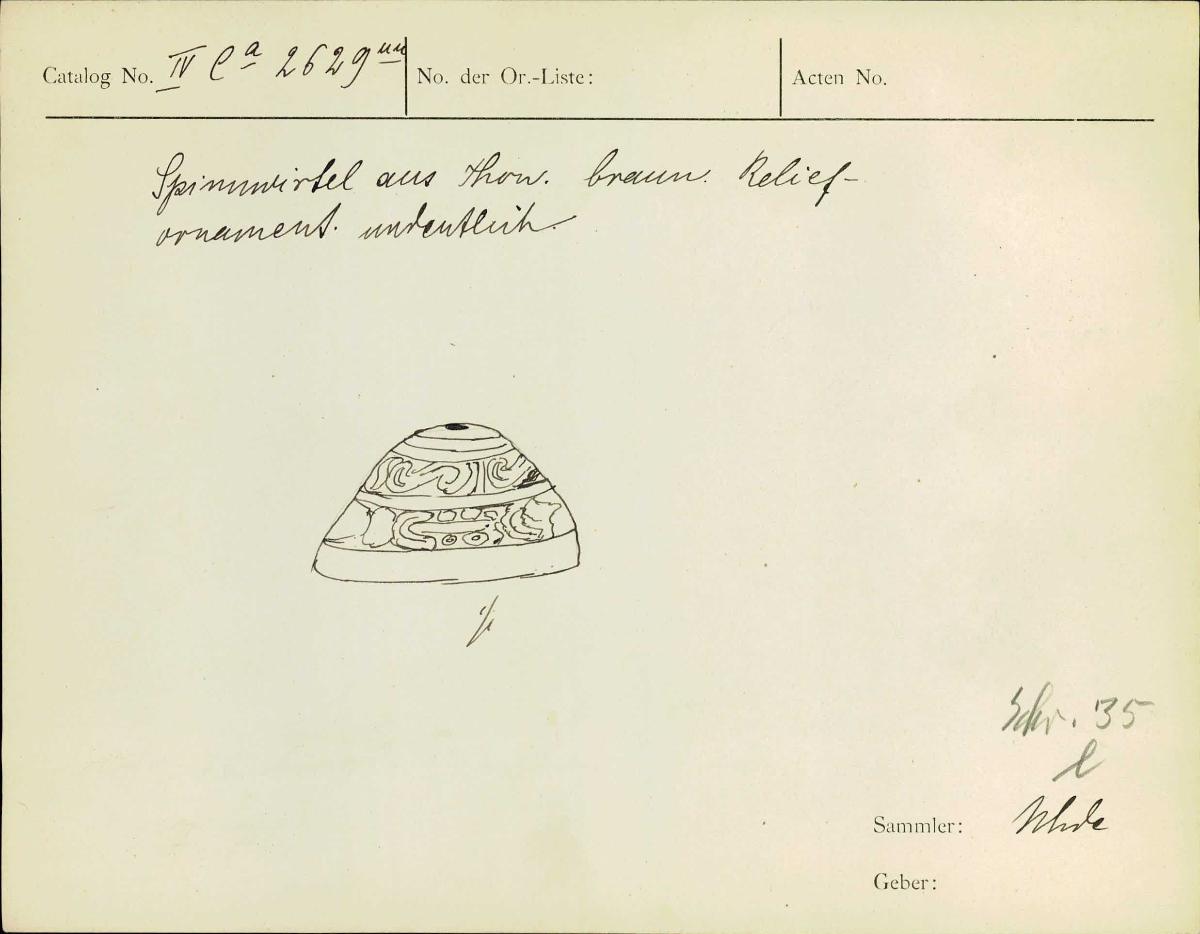 Catalog No. IV Ca 2629 uu No. der Or.-Liste: Acten No.
Spinnwirtel aus Thon. braun. Relief-
ornament. undeutlich.
1/1
Schr. 35
l
Sammler: Uhde
Geber: